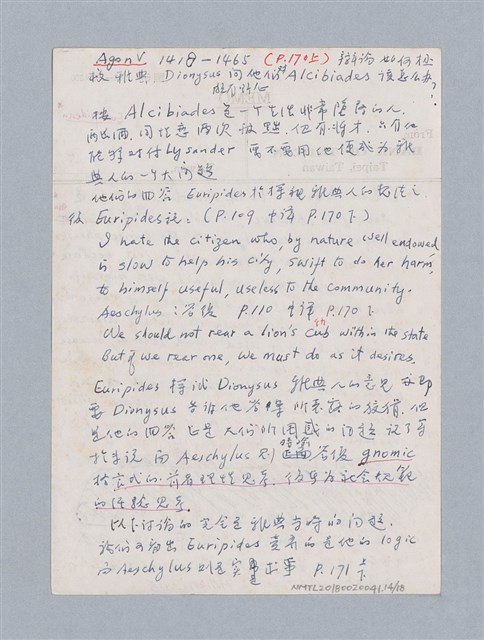 Agon V 1418 — 1465 (P.170上) 辯論如何拯
救雅典 Dionysus 问他们对 Alcibiades 該怎么办?
按 Alcibiades 是一个生活非常墮落的人.
两次 放逐. 但有將才. 只有他
能够对付 Lysander 要不要用他便成为雅
典人的一个大问题
他们的回答 Euripides 於 雅典人的 之
後 Euripides 说: (P.109 中译 P.170下)
I hate the citizen who, by nature well endowed
is slow to help his city, swift to do her harm,
to himself useful, useless to the community.
Aeschylus: 答復 P.110 中译 P.170下
We should not rear a lion's cub within the state
But if we rear one, we must do as it desires.
Euripides 探试 Dionysus 雅典人的意见 立即
要 Dionysus 告诉他答案 所表露的狡猾. 但
是他的回答 正是大们所困惑的问题 说了等
於未说 而 Aeschylus 则 答復 gnomic
格言式的. 前者理性思考. 後者为社会规範
的传统思考.
以下讨论的 完全是雅典当時的问题.
我们可看出 Euripides 的是他的 logic
而 Aeschylus 则是实事求事 P.171 上下
NMTL20180020041.14/18